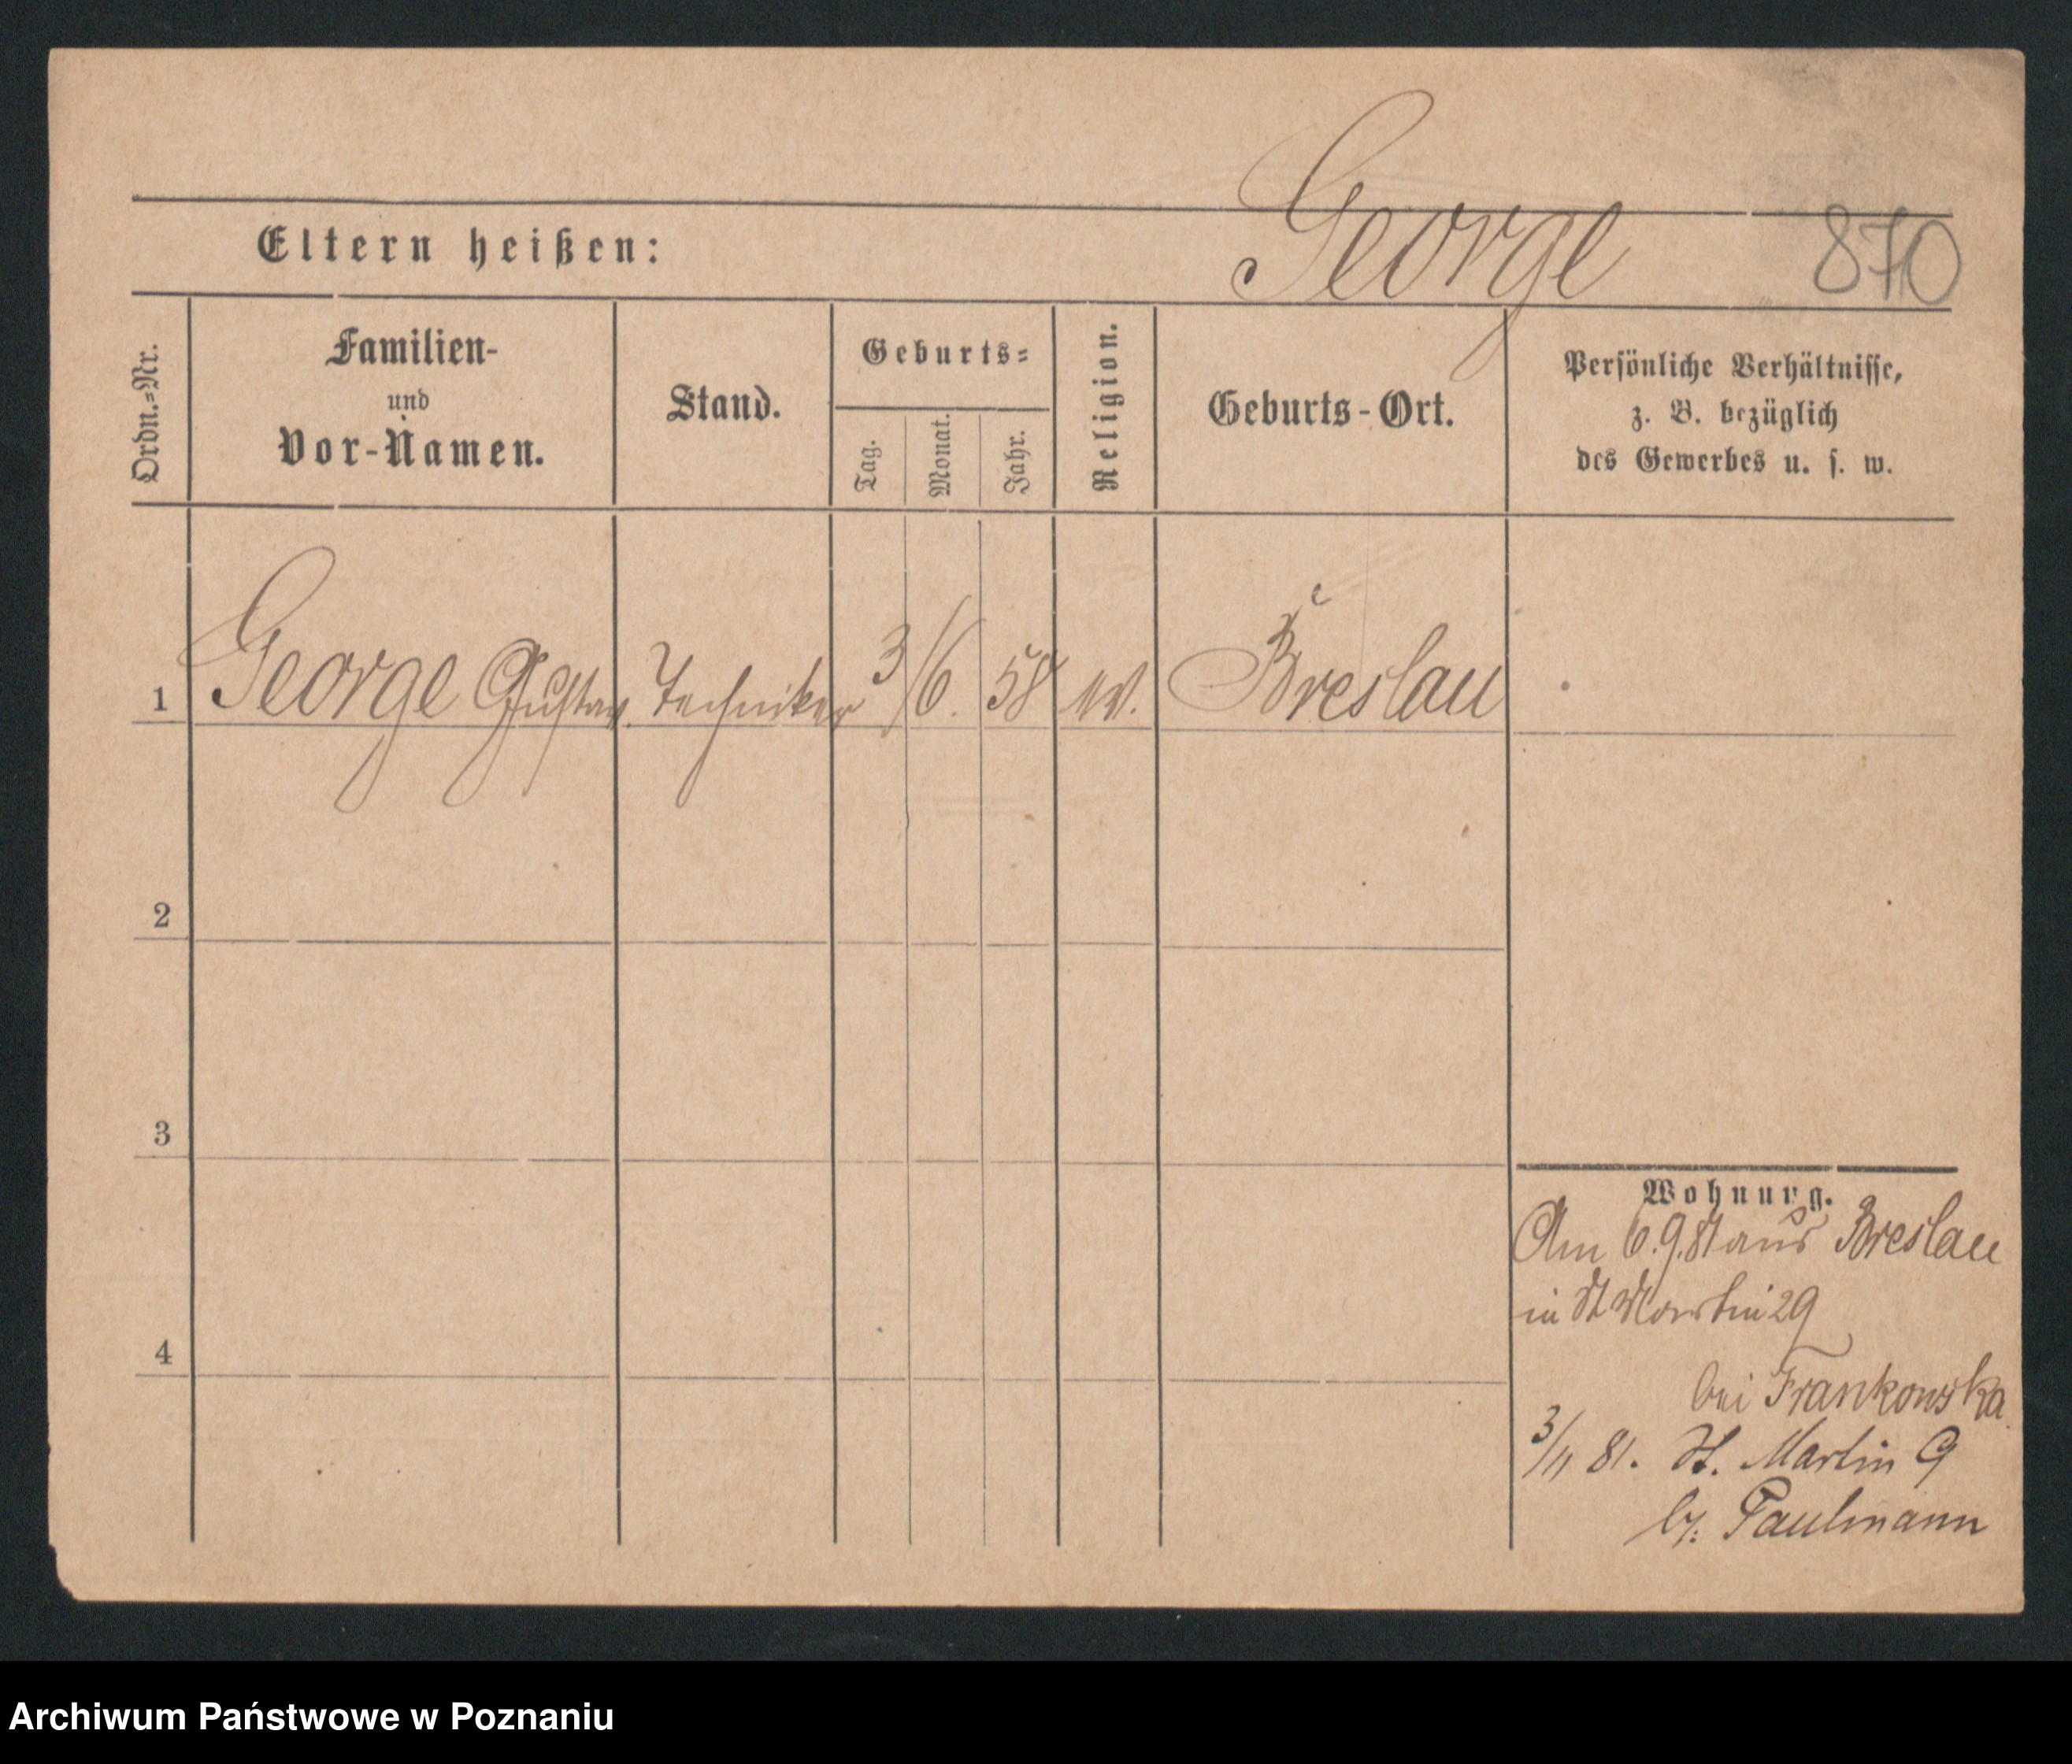 George
870
Eltern heißen:
Ordn.-Nr.
Familien-
und
Vor-Namen.
Stand.
Geburts-
Tag.
Monat.
Jahr.
Religion.
Geburts-Ort.
Persönliche Verhältnisse,
z. B. bezüglich
des Gewerbes u. s. w.
1 George Gustav. Techniker 3/6. 58 Breslau
2
3
4
Wohnung.
Am 6.9.81 aus Breslau
in St Martin 29
bei Frankowska
3/11 81. St. Martin 9
b/. Paulmann
Archiwum Państwowe w Poznaniu